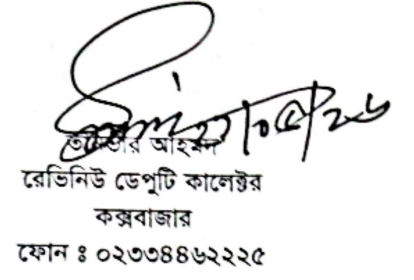 আহমদ
রেভিনিউ ডেপুটি কালেক্টর
কক্সবাজার
ফোন ঃ ০২৩৩৪৪৬২২২৫